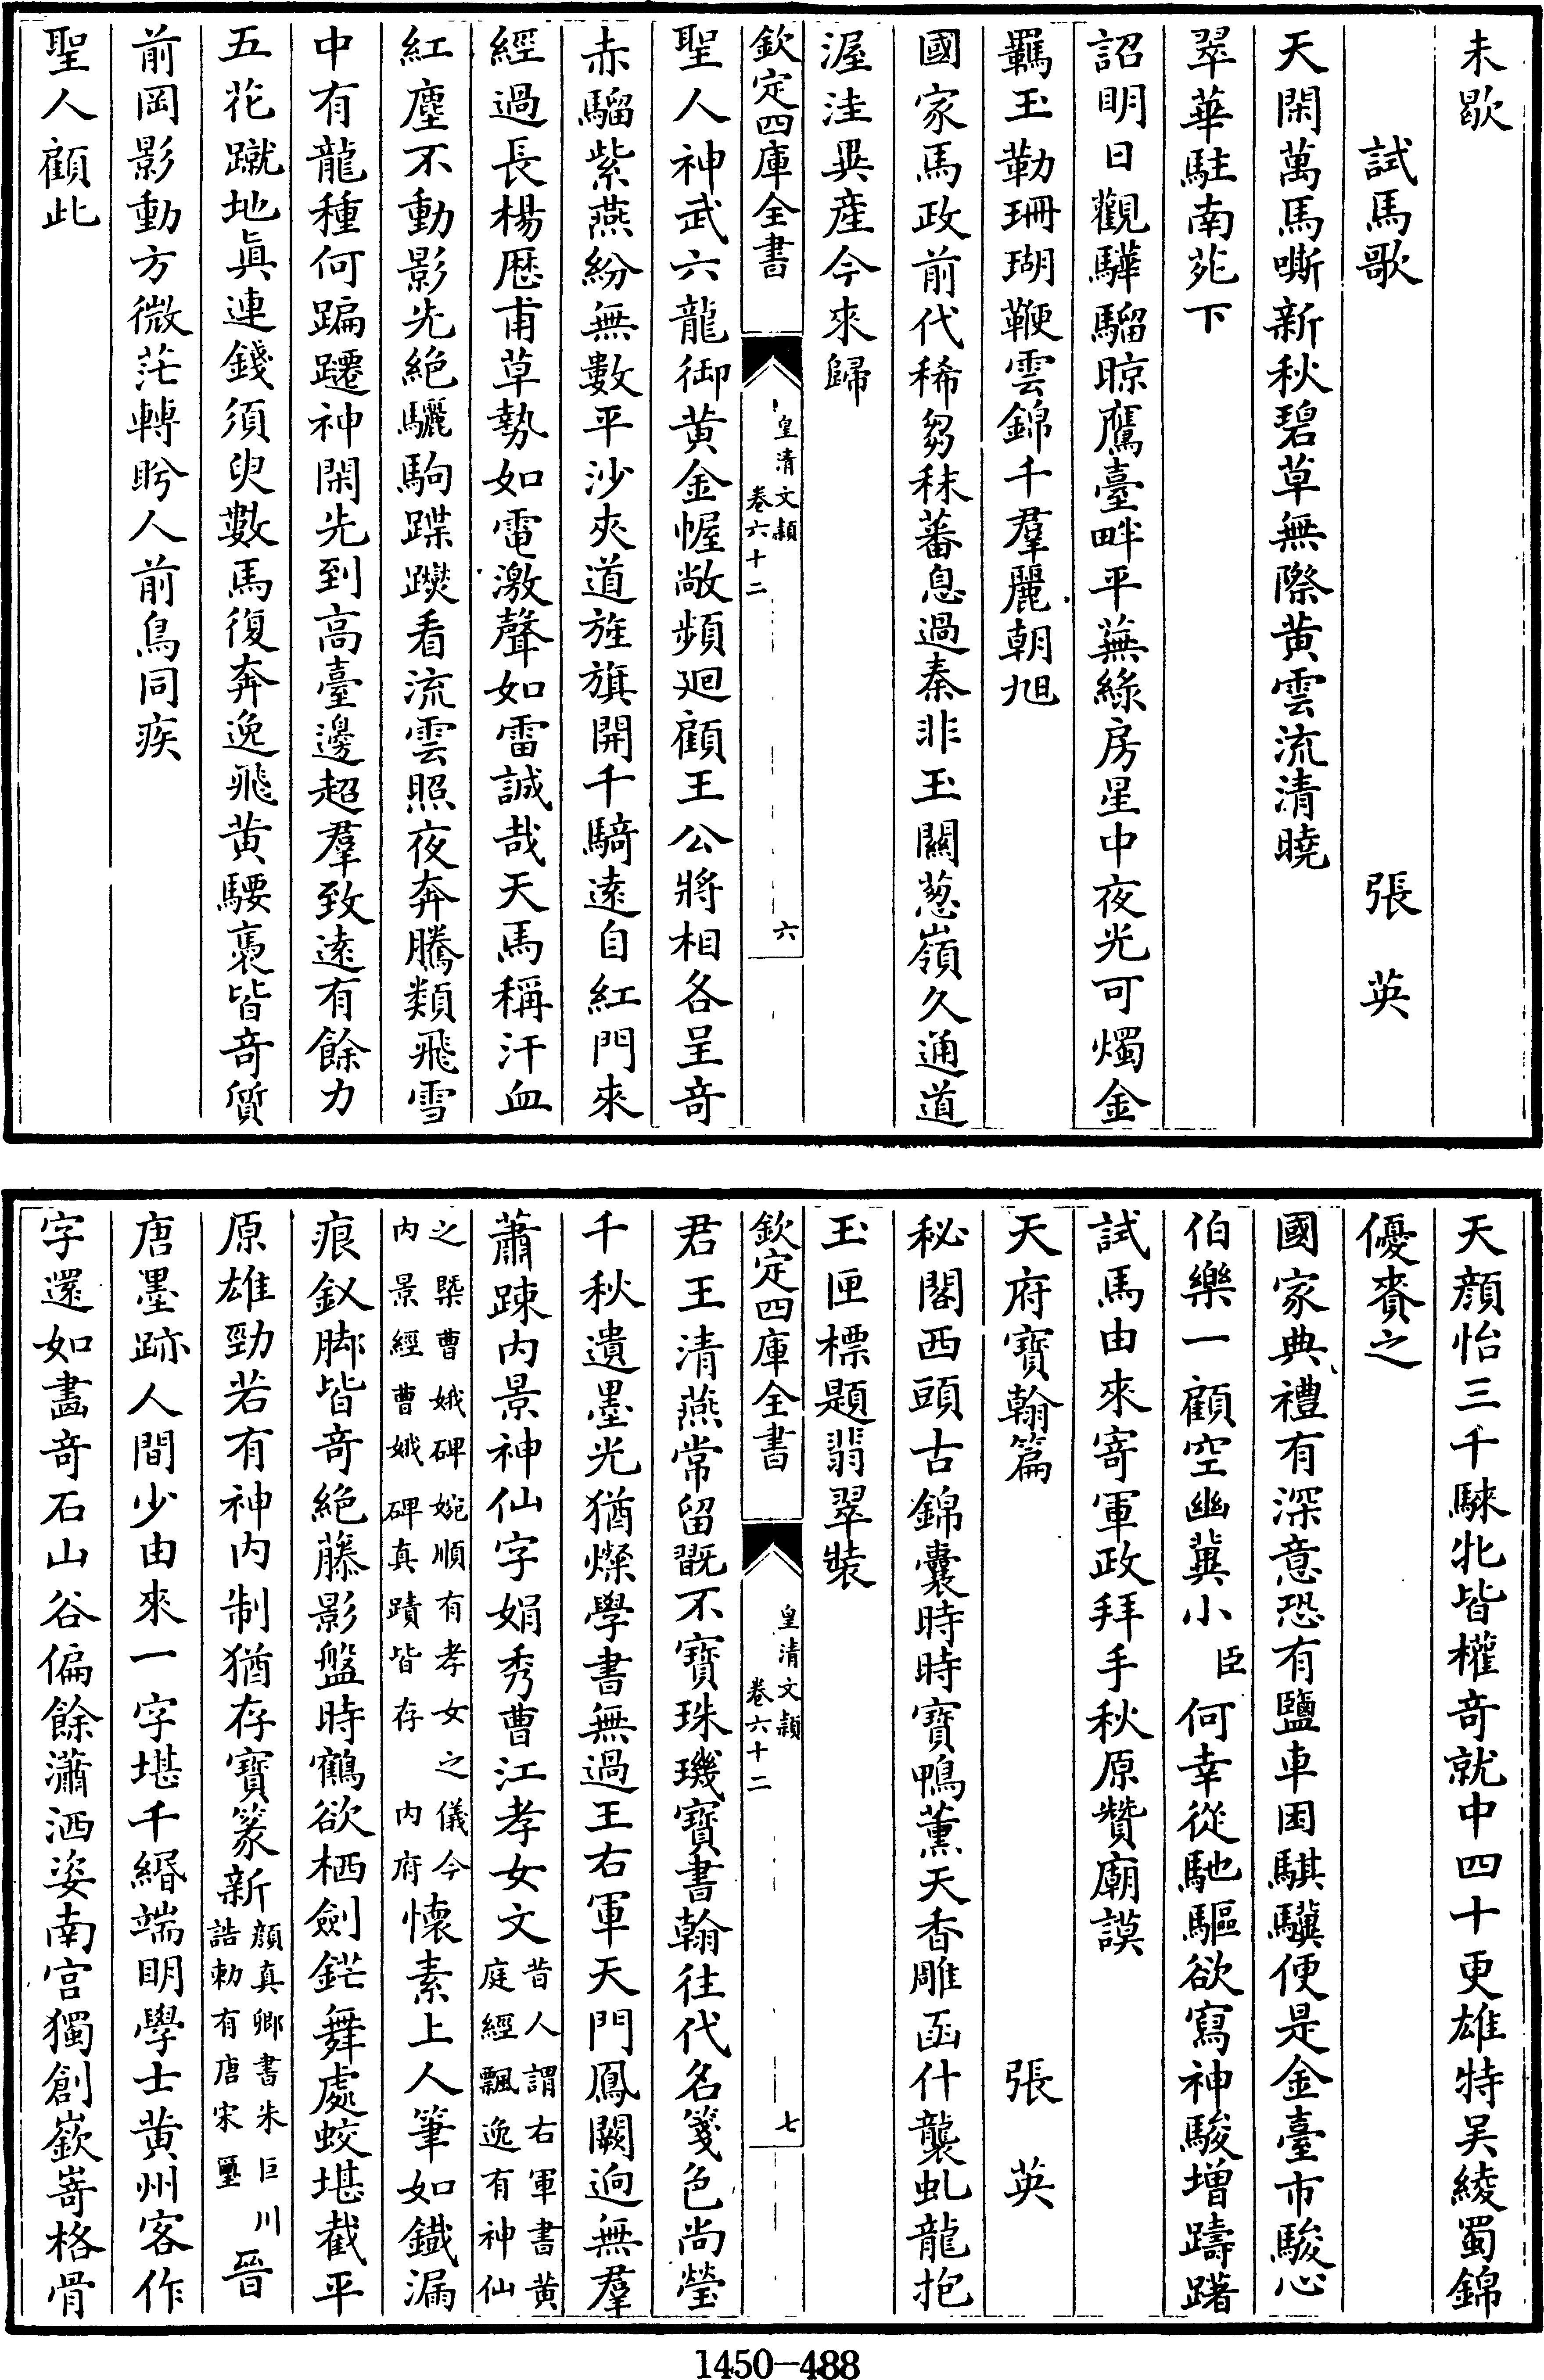 未歇
試馬歌　張英
天閑萬馬嘶新秋碧草無際黄雲流清曉
翠華駐南苑下
詔明日觀驊騮晾鷹臺畔平蕪綠房星中夜光可燭金
羈玉勒珊瑚鞭雲錦千羣麗朝旭
國家馬政前代稀芻秣蕃息過秦非玉關葱嶺久通道
渥洼異産今來歸
欽定四庫全書
皇清文穎
卷六十二
六
聖人神武六龍御黄金幄敞頻廻顧王公將相各呈奇
赤騮紫燕紛無數平沙夾道旌旗開千騎遠自紅門來
經過長楊歴甫草勢如電激聲如雷誠哉天馬稱汗血
紅塵不動影先絶驪駒蹀躞看流雲照夜奔騰類飛雪
中有龍種何蹁躚神閑先到高臺邊超羣致遠有餘力
五花蹴地眞連錢須臾數馬復奔逸飛黄騕褭皆奇質
前岡影動方微茫轉盻人前鳥同疾
聖人顧此
天顔怡三千騋牝皆權奇就中四十更雄特吴綾蜀錦
優賚之
國家典禮有深意恐有鹽車困騏驥便是金臺市駿心
伯樂一顧空幽冀小臣何幸從馳驅欲寫神駿增躊躇
試馬由來寄軍政拜手秋原贊廟謨
天府寶翰篇　張英
秘閣西頭古錦囊時時寶鴨薫天香雕函什襲虬龍抱
玉匣標題翡翠裝
欽定四庫全書
皇清文穎
卷六十二
七
君王清燕常留翫不寶珠璣寶書翰往代名箋色尚瑩
千秋遺墨光猶燦學書無過王右軍天門鳳闕迥無羣
蕭踈内景神仙字娟秀曹江孝女文昔人謂右軍書黄庭經飄逸有神仙
之槩曹娥碑婉順有孝女之儀今内景經曹娥碑真蹟皆存内府懷素上人筆如鐵漏
痕釵脚皆奇絶藤影盤時鶴欲栖劍鋩舞處蛟堪截平
原雄勁若有神内制猶存寶篆新顔真卿書朱巨川誥勅有唐宋璽晉
唐墨跡人間少由來一字堪千緡端明學士黄州客作
字還如畫奇石山谷偏餘瀟洒姿南宫獨創嶔嵜格骨
1450-488